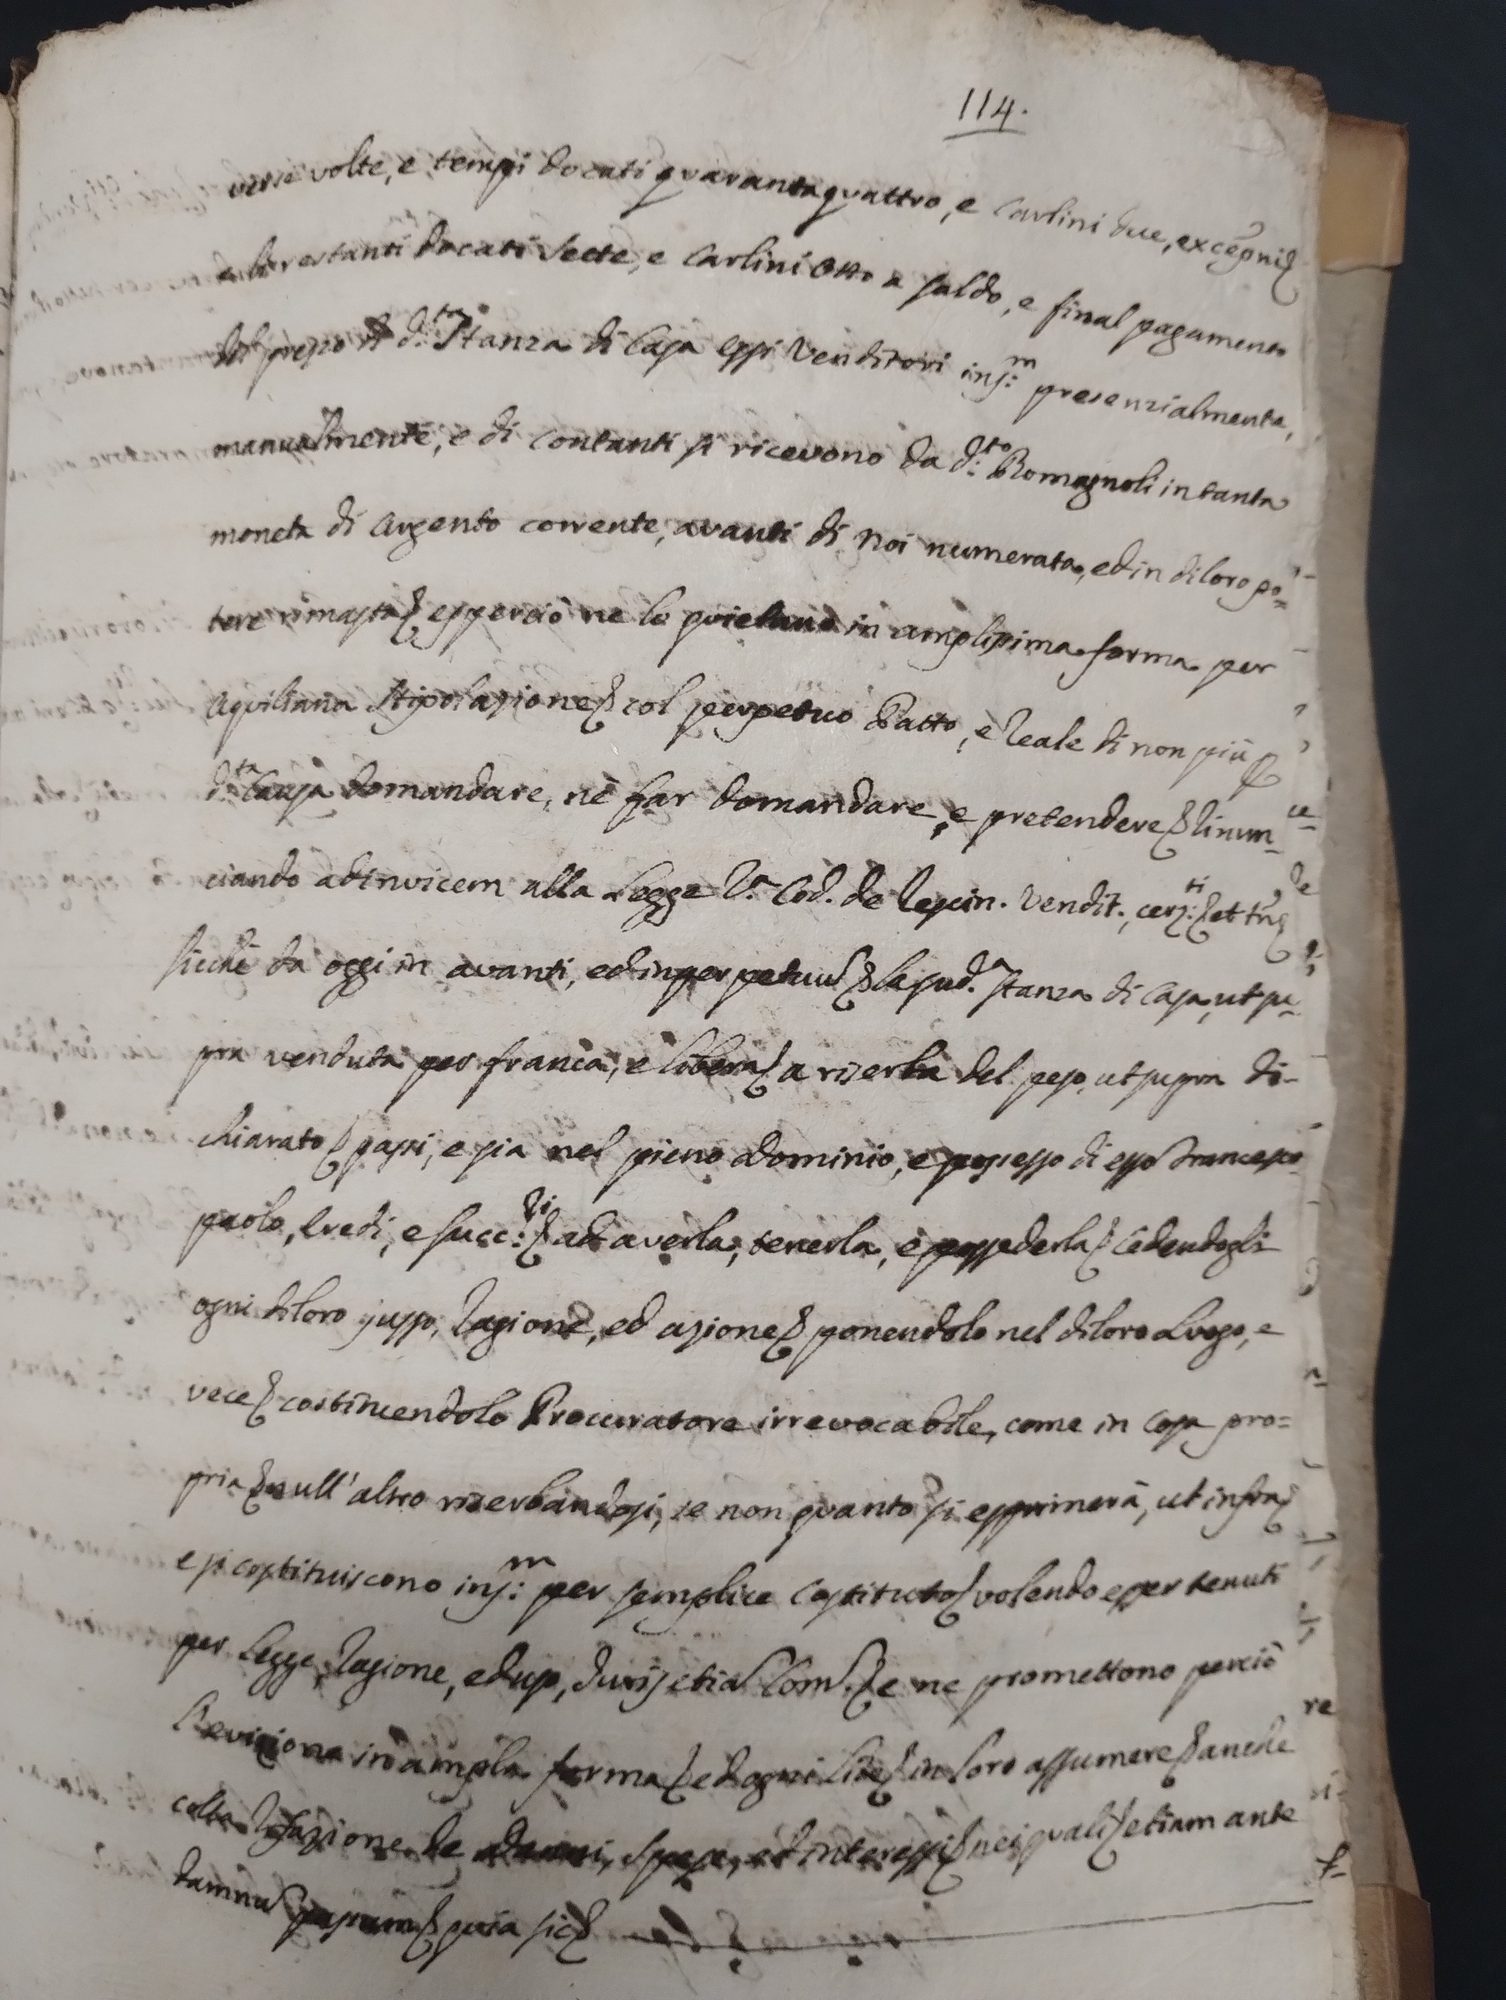 114.
verse volte, e tempi docati quarantaquattro, e Carlini due,
e li restanti docati sette, e Carlini otto a saldo, e final pagamento
del prezzo di d.ta Stanza di Casa essi Venditori ins:m presenzialmente,
manualmente, e di contanti si ricevono da d:to Romagnoli in tanta
moneta di Argento corrente, avanti di noi numerata, ed in di loro po=
tere rimasta& epperciò ne lo quietano in amplissima forma per
Aquiliana Stipolazione& col perpetuo Patto, e reale di non più
d:ta Causa domandare, nè far domandare, e pretendere& rinun=
ciando adinvicem alla Legge 2.a Cod. de rescin. Vendit.,
sicchè da oggi in avanti, ed in perpetuu& la sud.a Stanza di Casa, ut su=
pra venduta per franca, e libera& a riserba del peso, ut supra di=
chiarato& passi, e sia nel pieno dominio, e possesso di esso Francesco
paolo, Eredi, e succ:ri& ad averla, tenerla, e possederla& Cedendogli
ogni di loro jusso, ragione, ed azione& ponendolo nel di loro Luogo, e
vece& costituendolo Procuratore irrevocabile, come in cosa pro=
pria& null' altro riserbandosi, se non quanto si esprimerà, ut infra&
e si costituiscono ins:m per semplice Costituto& volendo esser tenuti
per Legge, ragione, ed uso, & e ne promettono perciò
l'evizione in ampla forma& ed ogni lite& in loro assumere& anche
colla refazione de danni, spese, ed interessi& nei quali& etiam ante
damnu passum& quia sic&